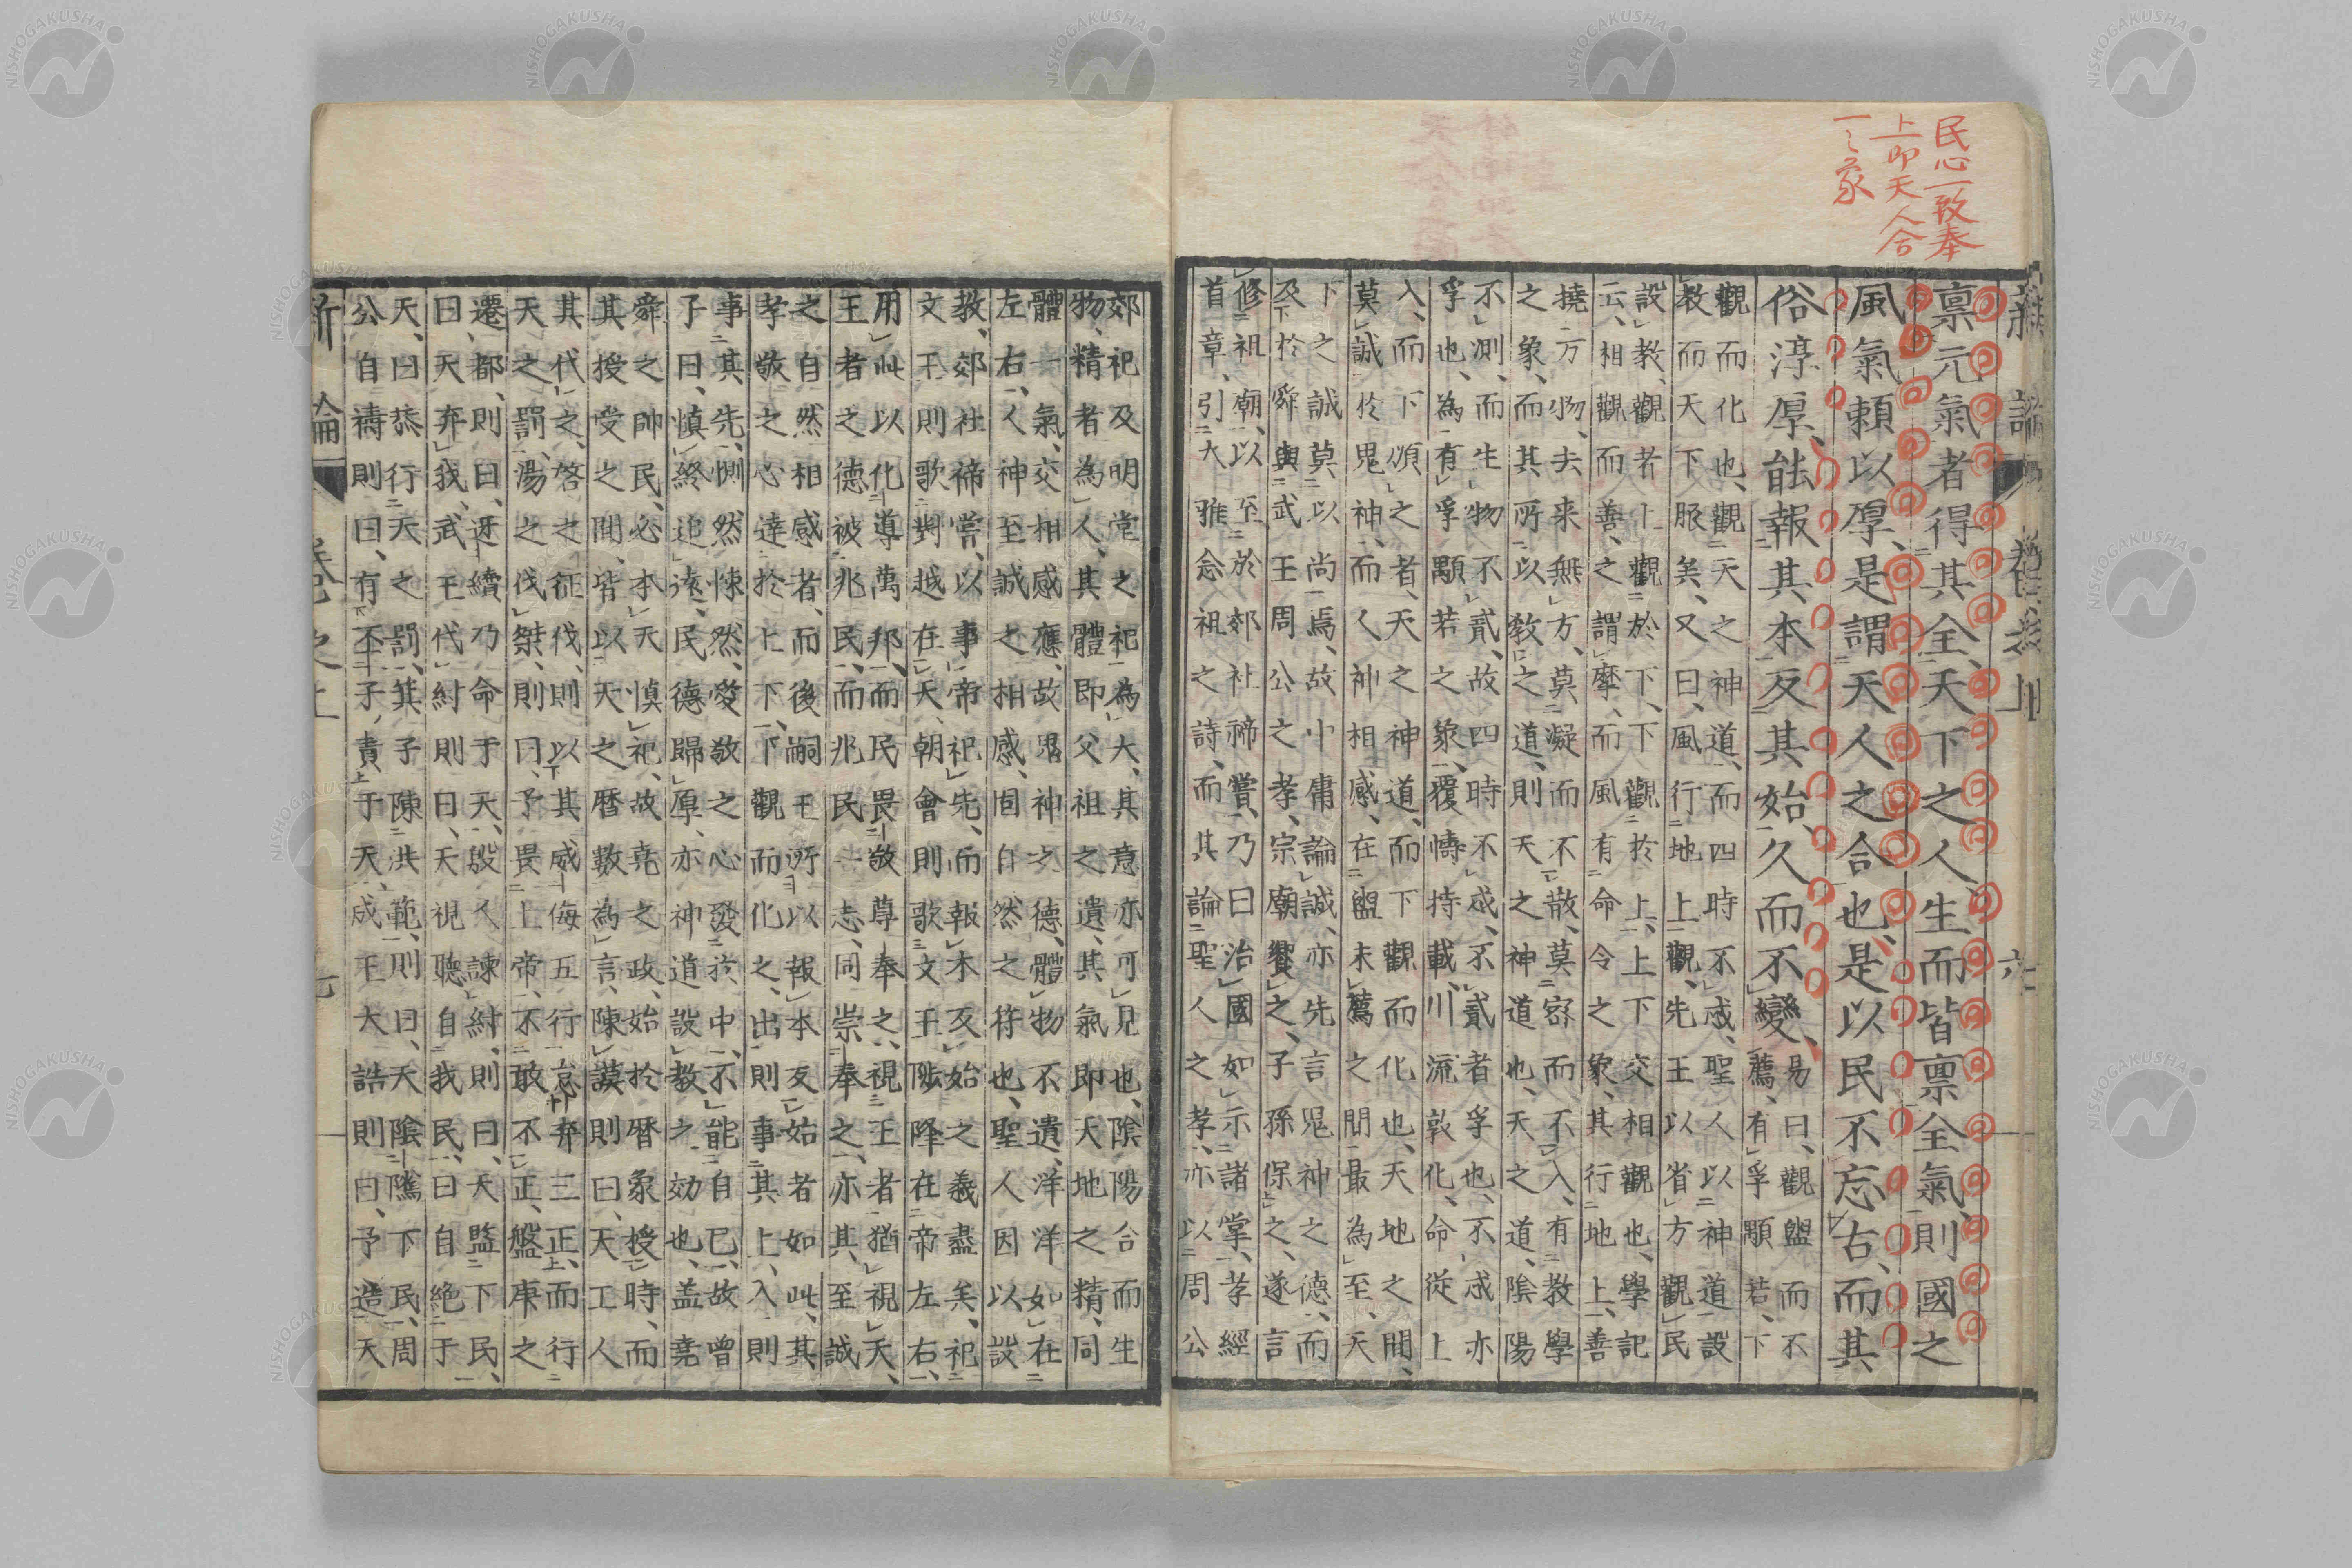 民心一致奉
上即天人合
一之象
新論
卷之上
六
禀元氣者得其全、天下之人、生而皆禀全氣、則國之
風氣頼以厚、是謂天人之合也、是以民不忘古、而其
俗淳厚、能報其本反其始、久而不變、
易曰、觀盥而不
薦、有孚顒若、下
觀而化也、觀天之神道、而四時不忒、聖人以神道設
教而天下服矣、又曰、風行地上觀、先王以省方觀民
設教、觀者上觀於下、下觀於上、上下交相觀也、學記
云、相觀而善、之謂摩、而風有命令之象、其行地上、善
撓万物、去来無方、莫凝而不散、莫窓而不入、有教學
之象、而其所以教之道、則天之神道也、天之道、陰陽
不測、而生物不貳、故四時不忒、不貳者孚也、不忒亦
孚也、為有孚顒若之象、覆幬持載、川流敦化、命從上
入、而下順之者、天之神道、而下觀而化也、天地之間、
莫誠於鬼神、而人神相感、在盥未薦之間最為至、天
下之誠莫以尚焉、故中庸論誠、亦先言鬼神之德、而
及於舜與武王周公之孝、宗廟饗之、子孫保之、遂言
修祖廟、以至於郊社禘嘗、乃曰治國如示諸掌、孝經
首章、引大雅念祖之詩、而其論聖人之孝、亦以周公
郊祀及明堂之祀為大、其意亦可見也、陰陽合而生
物、精者為人、其體即父祖之遺、其氣即天地之精、同
體一氣、交相感應、故鬼神之德、體物不遺、洋洋如在
左右、人神至誠之相感、固自然之符也、聖人因以設
教、郊社禘嘗、以事帝祀先、而報本反始之義盡矣、祀
文王則歌對越在天、朝會則歌文王陟降在帝左右、
用此以化導萬邦、而民畏敬尊奉之、視王者猶視天、
王者之德被兆民、而兆民一志、同崇奉之、亦其至誠
之自然相感者、而後嗣王所以報本反始者如此、其
孝敬之心達於上下、下觀而化之、出則事其上、入則
事其先、惻然悚然、愛敬之心發於中、不能自已、故曾
子曰、慎終追遠、民德歸厚、亦神道設教之効也、盖堯
舜之帥民、必本天慎祀、故堯之政、始於曆象授時、而
其授受之間、皆以天之曆數為言、陳謨則曰、天工人
其代之、啓之征伐、則以其威侮五行怠棄三正、而行
天之罰、湯之伐桀、則曰、予畏上帝、不敢不正、盤庚之
遷都、則曰、迓續乃命于天、殷人諫紂、則曰、天監下民、
曰天弃我、武王代紂則曰、天視聽自我民、曰自絶于
天、曰恭行天之罰、箕子陳洪範、則曰、天陰隲下民、周
公自禱則曰、有丕子責于天、成王大誥則曰、予造天
新論
卷之上
七